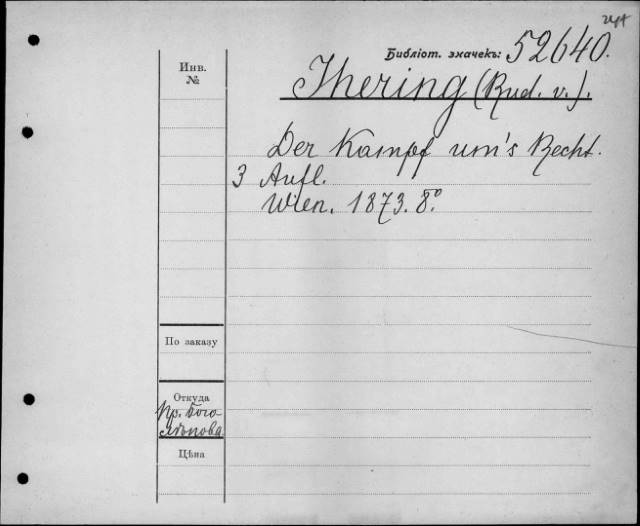 Библіот. значекъ: 52640.
Инв.
№
Jhering (Rud. v.).
Der Kampf um's Recht.
3 Aufl.
Wien. 1873. 8º.
По заказу
Откуда
Пр. Бого
лѣпова
Цѣна